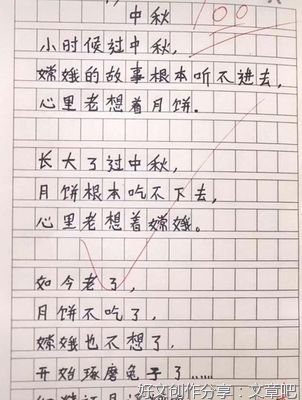 中秋
100
小时候过中秋，
嫦娥的故事根本听不进去，
心里老想着月饼。
长大了过中秋，
月饼根本吃不下去，
心里老想着嫦娥。
如今老了，
月饼不吃了，
嫦娥也不想了，
开始琢磨兔子了……
好文创作分享：文章吧